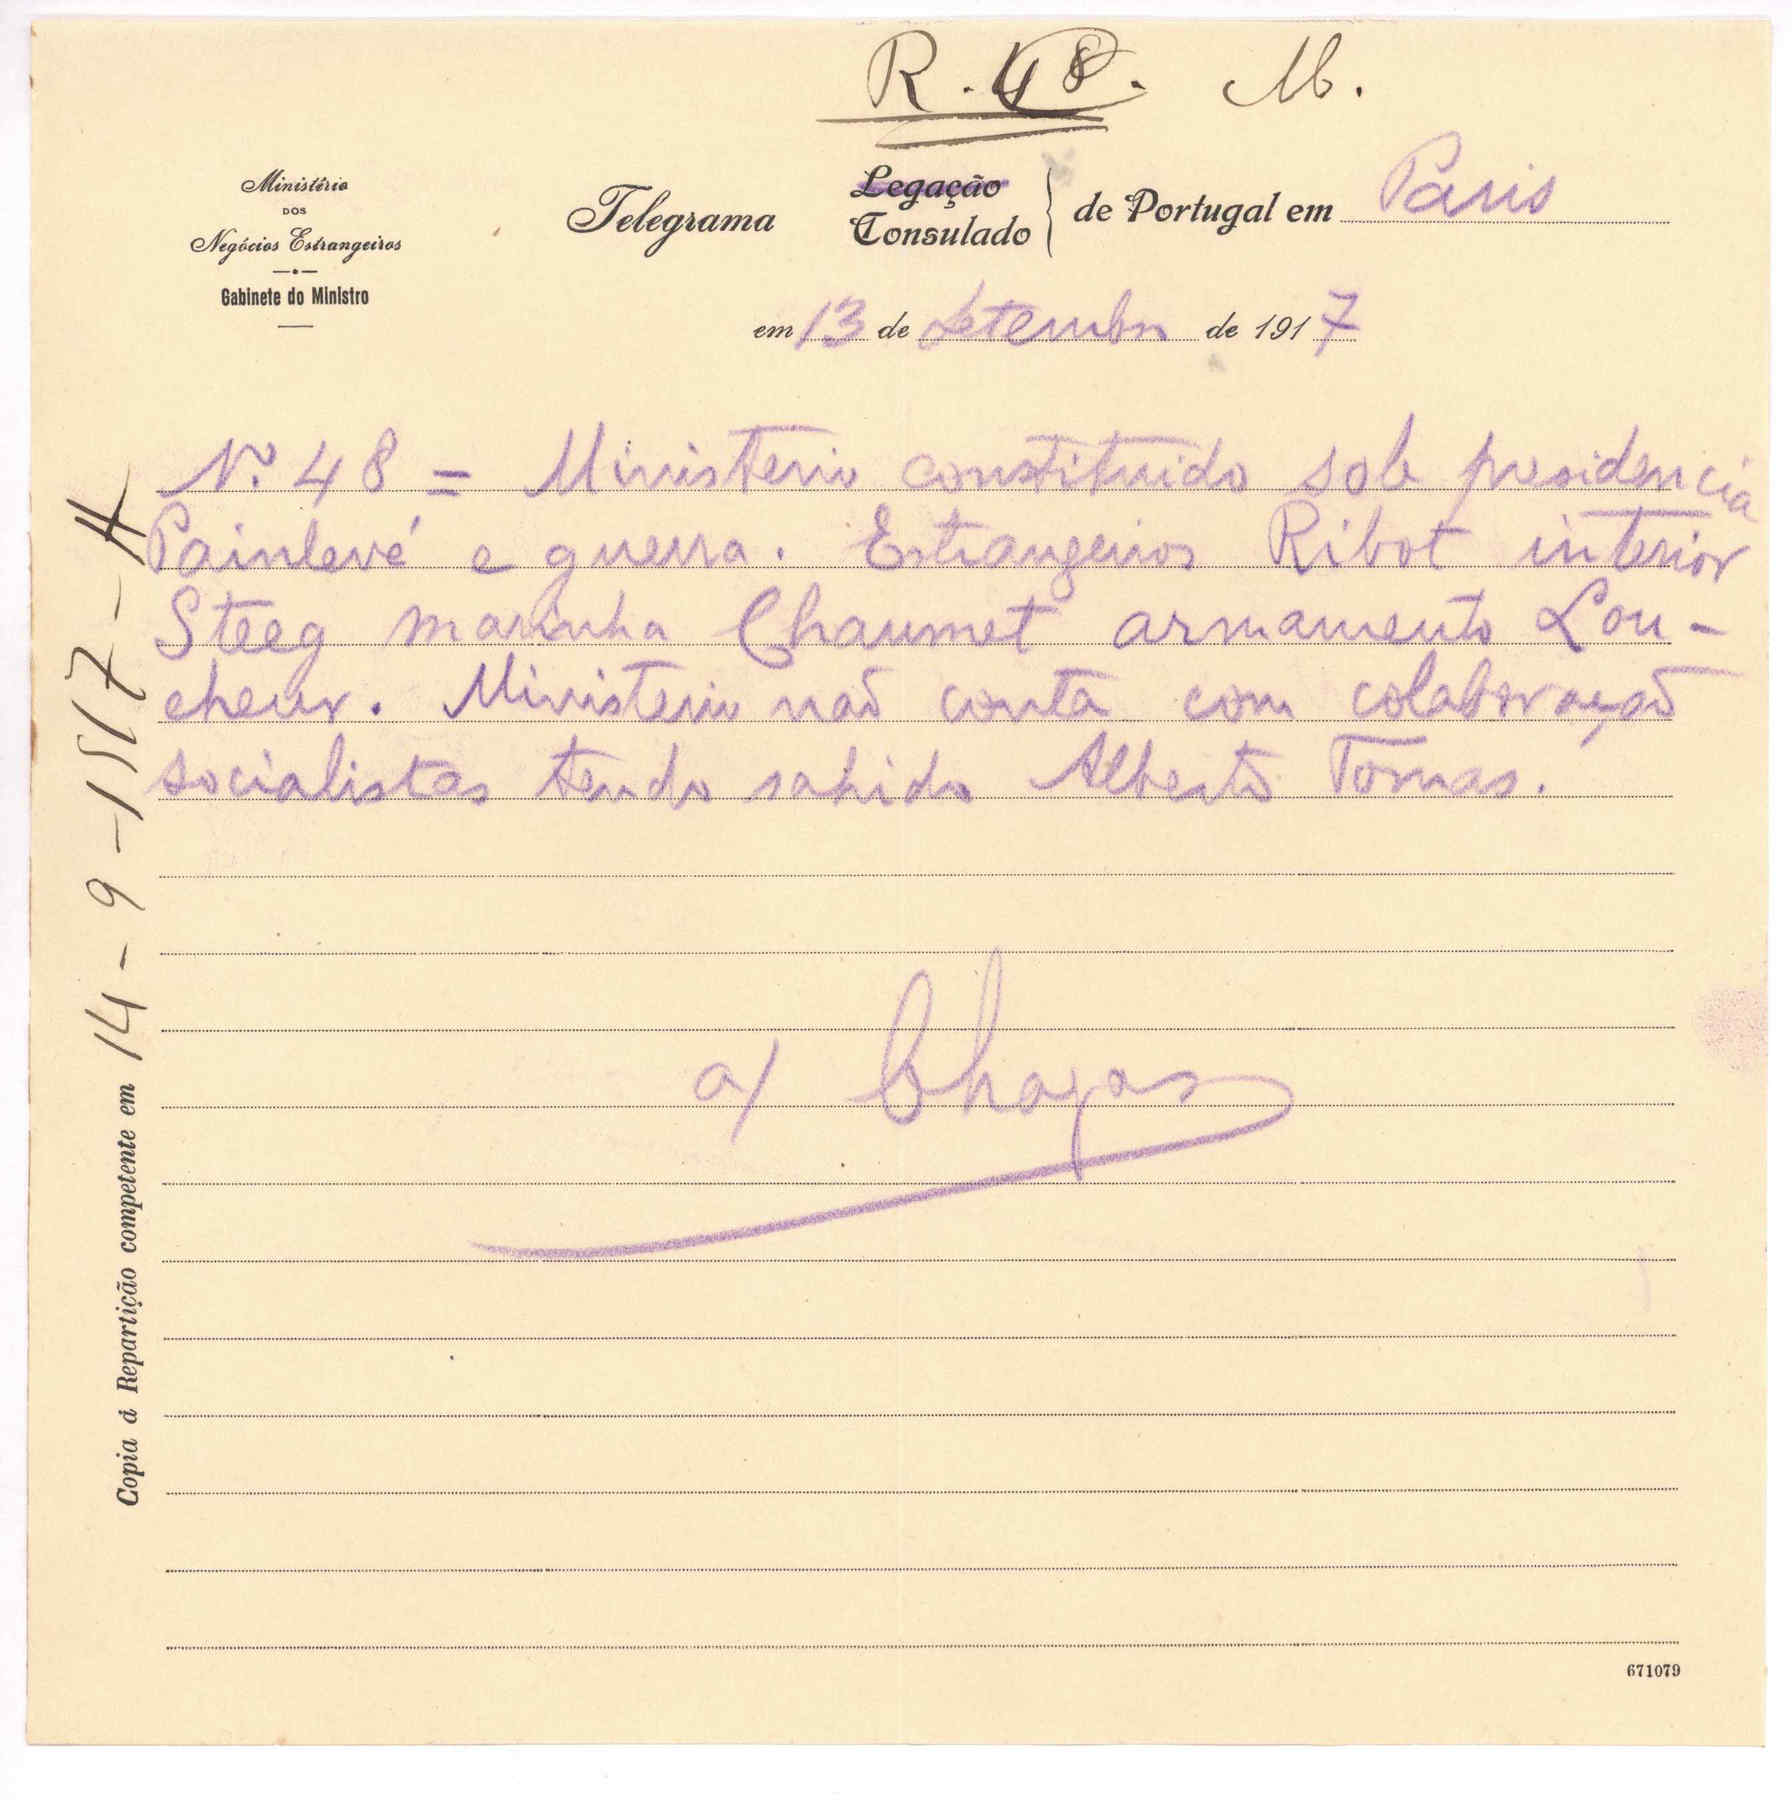 R. 48. M.
Ministério
DOS
Negócios Estrangeiros
Gabinete do Ministro
Telegrama Legação
Consulado
de Portugal em Paris
em 13 de Setembro de 1917
Nº 48 = Ministerio constituido sob presidencia
Painlevé e guerra. Estrangeiros Ribot interior
Steeg marinha Chaumet armamento Lou-
cheur. Ministerio não conta com colaboração
socialistas tendo sahido Alberto Tomas.
a/ Chagas
Copia á Repartição competente em 14-9-1917-H
671079